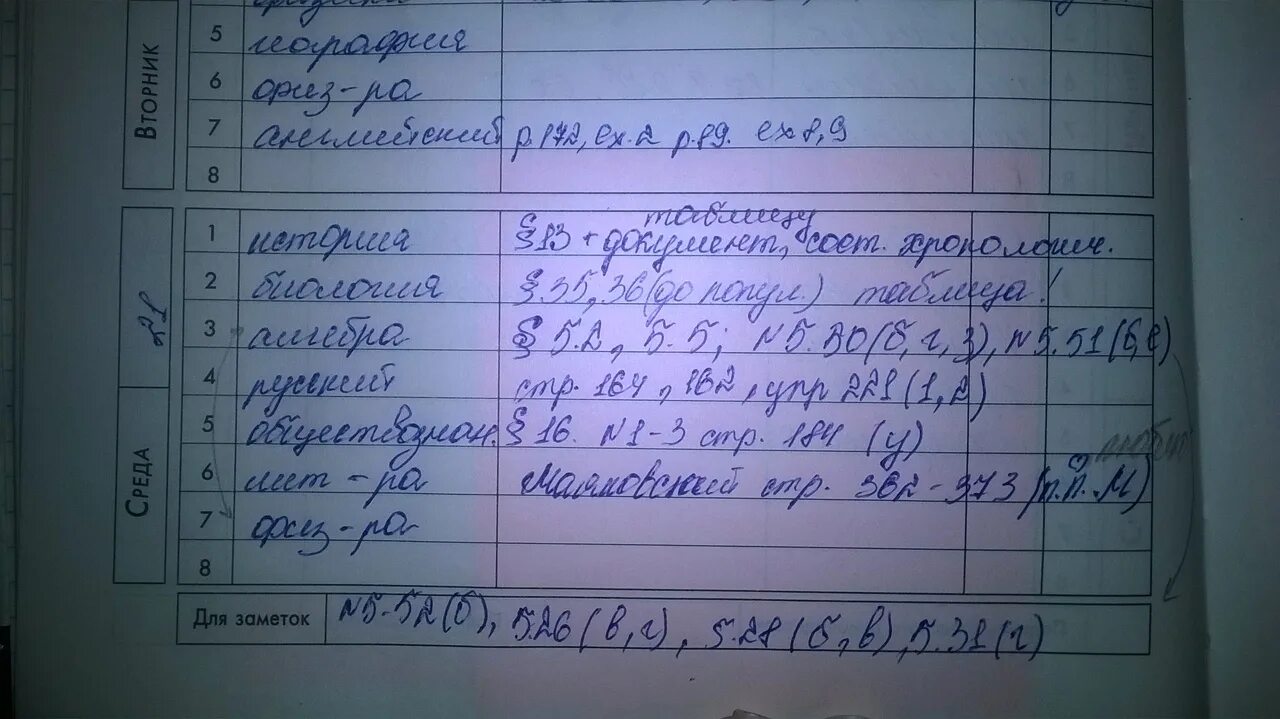 ВТОРНИК
5 география
6 физ-ра
7 английский р.172, ex.2 р.89. ex 8,9
8
21
1 история §13 + документ, сост. хронологич. таблицу
2 биология § 35, 36 (до попул.) таблица!
3 алгебра § 5.2, 5.5; N5.30(б,г,з), N5.51(б,е)
4 русский стр. 164, 162, упр 221(1,2)
СРЕДА
5 обществознан. § 16. N1-3 стр. 184 (у)
6 лит-ра Маяковский стр. 362-373 (п.П.М)
7 физ-ра
8
Для заметок N5.52(б), 5.26(в,г), 5.28(б,в), 5.31(г)